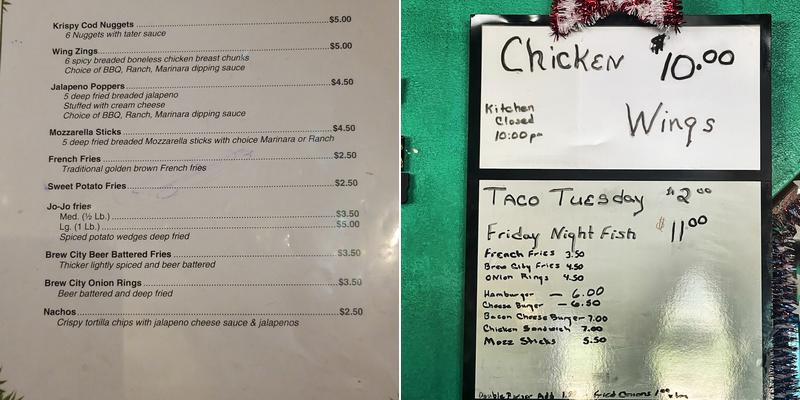 Krispy Cod Nuggets $5.00
6 Nuggets with tater sauce
Wing Zings $5.00
6 spicy breaded boneless chicken breast chunks
Choice of BBQ, Ranch, Marinara dipping sauce
Jalapeno Poppers $4.50
5 deep fried breaded jalapeno
Stuffed with cream cheese
Choice of BBQ, Ranch, Marinara dipping sauce
Mozzarella Sticks $4.50
5 deep fried breaded Mozzarella sticks with choice Marinara or Ranch
French Fries $2.50
Traditional golden brown French fries
Sweet Potato Fries $2.50
Jo-Jo fries
Med. (½ Lb.) $3.50
Lg. (1 Lb.) $5.00
Spiced potato wedges deep fried
Brew City Beer Battered Fries $3.50
Thicker lightly spiced and beer battered
Brew City Onion Rings $3.50
Beer battered and deep fried
Nachos $2.50
Crispy tortilla chips with jalapeno cheese sauce & jalapenos
Chicken $10.00
Wings
Kitchen
Closed
10:00pm
Taco Tuesday $2.00
Friday Night Fish $11.00
French Fries 3.50
Brew City Fries 4.50
Onion Rings 4.50
Hamburger — 6.00
Cheese Burger — 6.50
Bacon Cheese Burger 7.00
Chicken Sandwich 7.00
Mozz Sticks 5.50
Add
Fried Onions